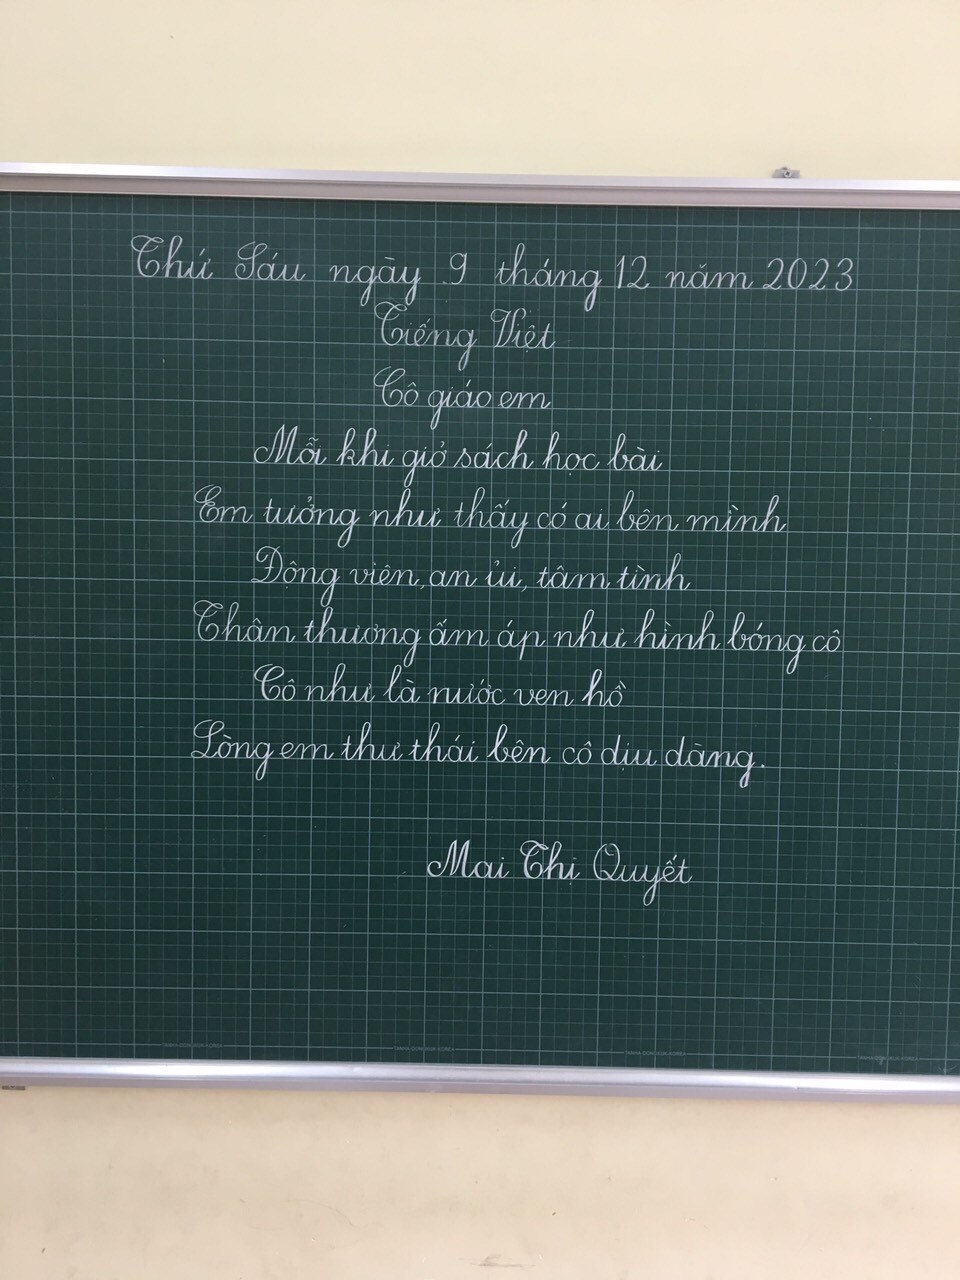 Thứ Sáu ngày 9 tháng 12 năm 2023
Tiếng Việt
Cô giáo em
Mỗi khi giở sách học bài
Em tưởng như thấy có ai bên mình
Động viên, an ủi, tâm tình
Thân thương ấm áp như hình bóng cô
Cô như là nước ven hồ
Lòng em thư thái bên cô dịu dàng.
Mai Thị Quyết